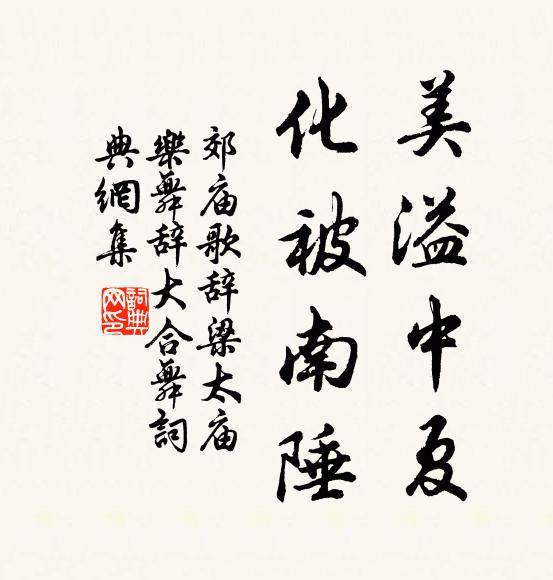 美溢中夏
化被南陲
郊庙歌辞梁太庙
樂舞辞大合舞詞
典網集
詞典网印